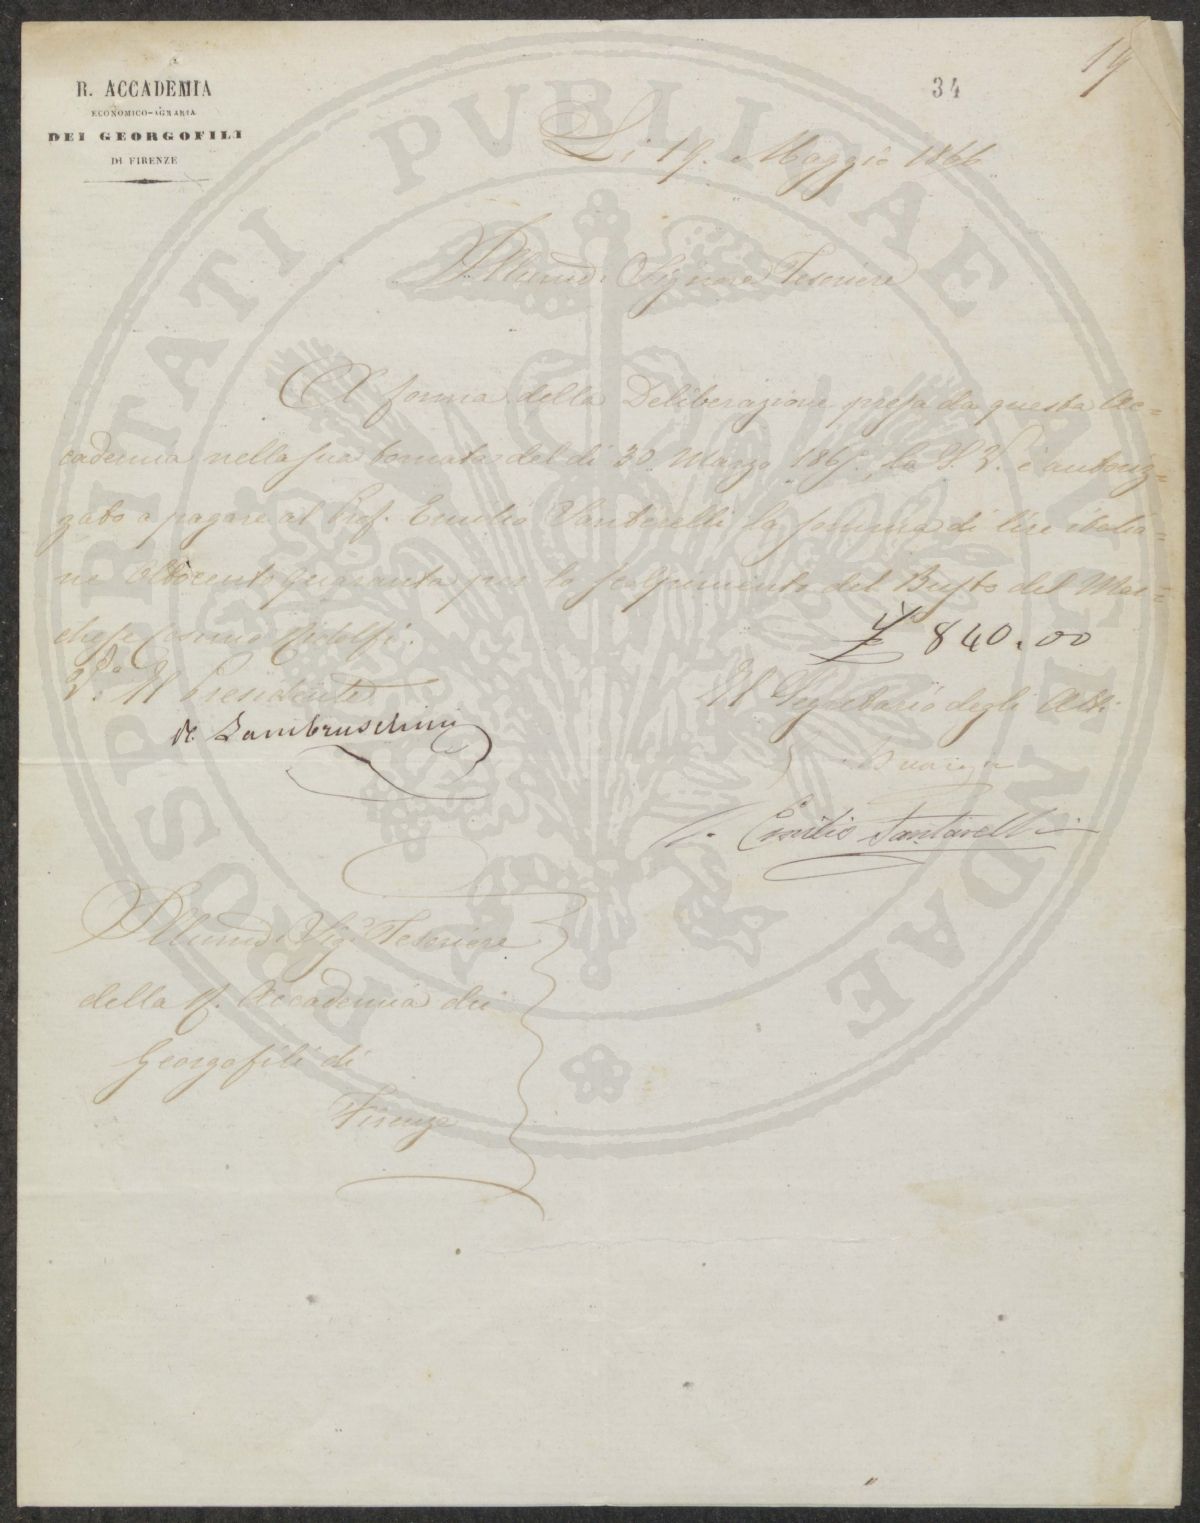 19
34
R. ACCADEMIA
ECONOMICO-AGRARIA
DEI GEORGOFILI
DI FIRENZE
Li 19. Maggio 1866
Signore Tesoriere
A forma della Deliberazione presa da questa Ac=
cademia nella sua tornata del dì 30. Marzo 1865., la S. V. è autoriz=
zato a pagare al Prof. Emilio Santarelli la somma di lire italia=
ne Ottocentoquaranta per lo scolpimento del Busto del Mar=
chese Cosimo Ridolfi.
£ 840.00
V.° Il Presidente
R. Lambruschini
Il Segretario degli Atti
Emilio Santarelli
Sig.r Tesoriere
della R. Accademia dei
Georgofili di
Firenze
PROSPERITATI PVBLICAE AVGENDAE